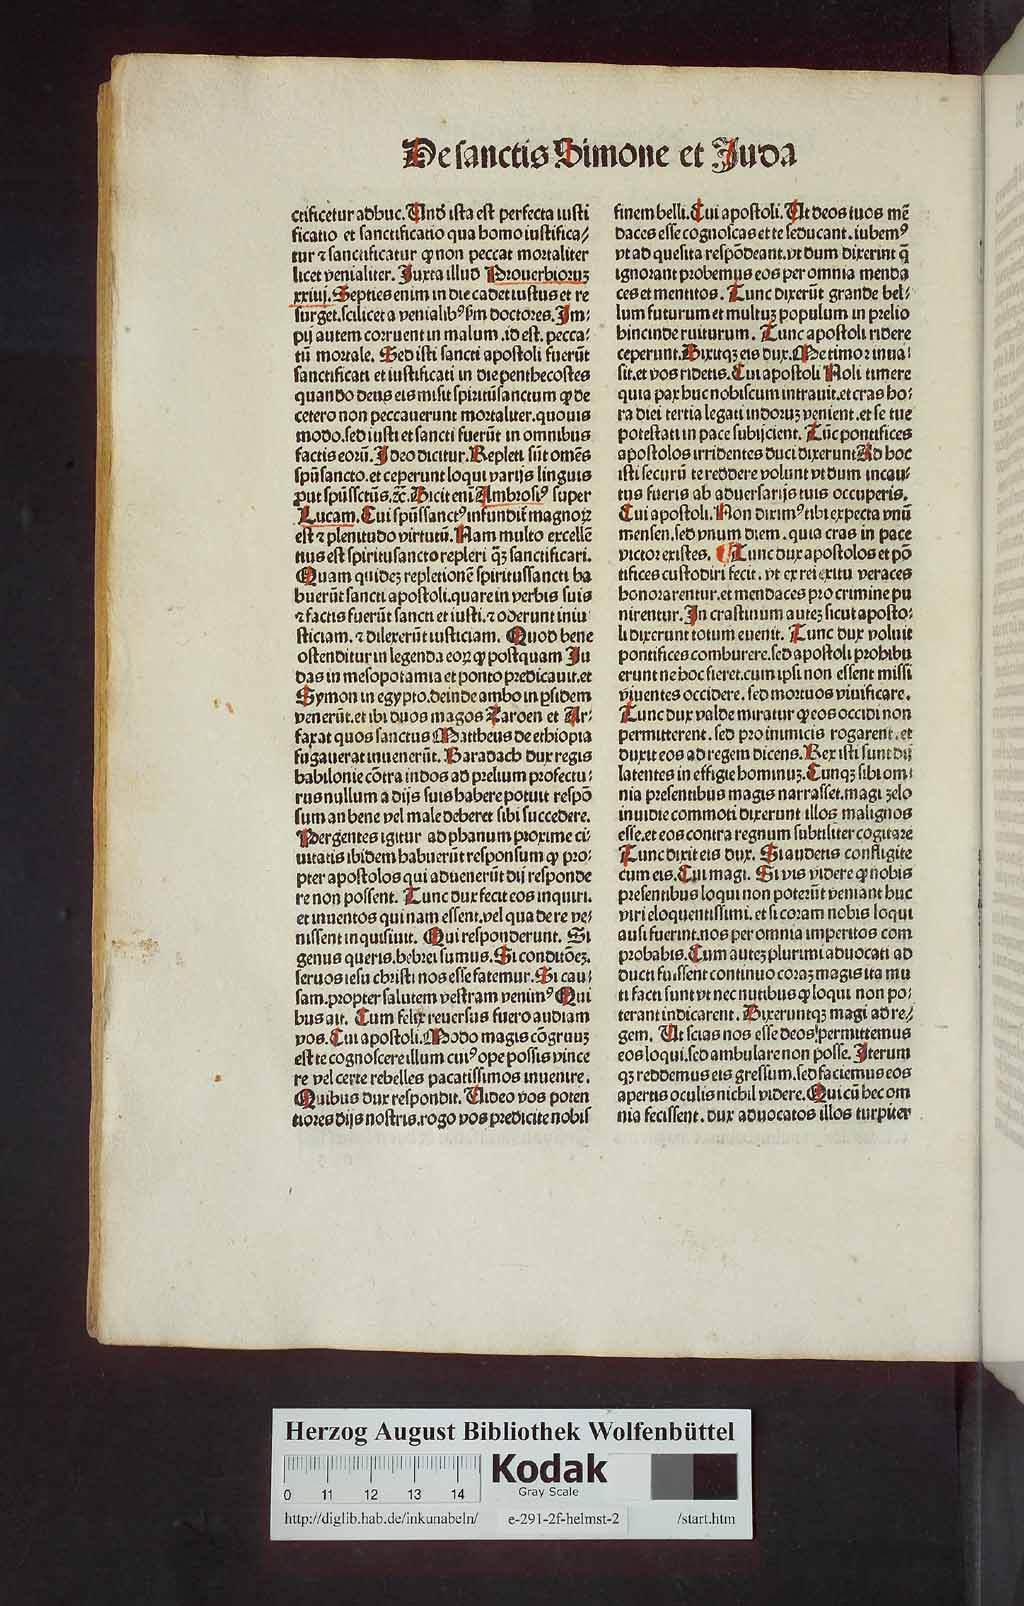 De sanctis Simone et Juda
ctificetur adhuc. Unđ ista est perfecta iusti
ficatio et sanctificatio qua homo iustifica/
tur ⁊ sanctificatur ꝙ non peccat mortaliter
licet venialiter. Juxta illud Prouerbioruꝫ
xxiiij. Septies enim in die cadet iustus et re
surget. scilicet a venialibꝰ ẜm doctores. Im-
pij autem corruent in malum .id est. pecca-
tū mortale. Sed isti sancti apostoli fuerūt
sanctificati et iustificati in die penthecostes
quando deus eis misit spiritūsanctum ꝙ de
cetero non peccauerunt mortaliter. quouis
modo. sed iusti et sancti fuerūt in omnibus
factis eorū. Ideo dicitur. Repleti sūt omēs
spūsancto. et ceperunt loqui varijs linguis
ꝓut spūssctūs. ⁊č. Dicit eni Ambrosiꝰ super
Lucam. Cui spūssanctꝰ infundit̄ magnoꝝ
est ⁊ plenitudo virtutū. Nam multo excellē
tius est spiritusancto repleri qꝫ sanctificari.
Quam quideꝫ repletionē spiritussancti ha
buerūt sancti apostoli. quare in verbis suis
⁊ factis fuerūt sancti et iusti. ⁊ oderunt iniu
sticiam. ⁊ dilexerūt iusticiam. Quod bene
ostenditur in legenda eoꝝ ꝙ postquam Ju
das in mesopotamia et ponto predicauit. et
Symon in egypto. deinde ambo in ꝑsidem
venerūt. et ibi duos magos Zaroen et Ar-
faxat quos sanctus Mattheus de ethiopia
fugauerat inuenerūt. Baradach dux regis
babilonie cōtra indos ad prelium profectu-
rus nullum a dijs suis habere potuit respō
sum an bene vel male deberet sibi succedere.
Pergentes igitur ad phanum proxime ci-
uitatis ibidem habuerūt responsum ꝙ pro-
pter apostolos qui aduenerūt dij responde
re non possent. Tunc dux fecit eos inquiri.
et inuentos qui nam essent. vel qua de re ve-
nissent inquisiuit. Qui responderunt. Si
genus queris. hebrei sumus. Si conditiōeꝫ.
seruos iesu christi nos esse fatemur. Si cau-
sam. propter salutem vestram venimꝰ Qui
bus ait. Cum felix reuersus fuero audiam
vos. Cui apostoli. Modo magis cōgruuꝫ
est te cognoscere illum cuiꝰ ope possis vince
re vel certe rebelles pacatissimos inuenire.
Quibus dux respondit. Video vos poten
tiores dijs nostris. rogo vos predicite nobis
finem belli. Cui apostoli. Ut deos tuos mē
daces esse cognoscas et te seducant. iubemꝰ
vt ad quesita respōdeant. vt dum dixerint q̄
ignorant probemus eos per omnia menda
ces et mentitos. Tunc dixerūt grande bel-
lum futurum et multuꝫ populum in prelio
hincinde ruiturum. Tunc apostoli ridere
ceperunt. Dixitqꝫ eis dux. Me timor inua-
sit. et vos ridetis. Cui apostoli Noli timere
quia pax huc nobiscum intrauit. et cras ho-
ra diei tertia legati indoruꝫ venient. et se tue
potestati in pace subijcient. Tūc pontifices
apostolos irridentes duci dixerunt Ad hoc
isti securū te reddere volunt vt dum incau-
tus fueris ab aduersarijs tuis occuperis.
Cui apostoli. Non diximꝰ tibi expecta vnū
mensen. sed vnum diem. quia cras in pace
victor existes. ¶ Tunc dux apostolos et pō
tifices custodiri fecit. vt ex rei exitu veraces
honorarentur. et mendaces pro crimine pu
nirentur. In crastinum auteꝫ sicut aposto-
li dixerunt totum euenit. Tunc dux voluit
pontifices comburere. sed apostoli prohibu
erunt ne hoc fieret. cum ipsi non essent missi
viuentes occidere. sed mortuos viuificare.
Tunc dux valde miratur ꝙ eos occidi non
permitterent. sed pro inimicis rogarent. et
duxit eos ad regem dicens. Rex isti sunt dij
latentes in effigie hominuꝫ. Cunqꝫ sibi om-
nia presentibus magis narrasset. magi zelo
inuidie commoti dixerunt illos malignos
esse. et eos contra regnum subtiliter cogitare
Tunc dixit eis dux. Si audetis confligite
cum eis. Cui magi. Si vis videre ꝙ nobis
presentibus loqui non poterūt veniant huc
viri eloquentissimi. et si coram nobis loqui
ausi fuerint. nos per omnia imperitos com
probabis. Cum auteꝫ plurimi aduocati ad
ducti fuissent continuo coraꝫ magis ita mu
ti facti sunt vt nec nutibus ꝙ loqui non po-
terant indicarent. Dixeruntqꝫ magi ad re/
gem. Ut scias nos esse deos permittemus
eos loqui. sed ambulare non posse. Iterum
qꝫ reddemus eis gressum. sed faciemus eos
apertis oculis nichil videre. Qui cū hec om
nia fecissent. dux aduocatos illos turpiter
Herzog August Bibliothek Wolfenbüttel
0 11 12 13 14
Kodak
Gray Scale
http://diglib.hab.de/inkunabeln/ e-291-2f-helmst-2 /start.htm